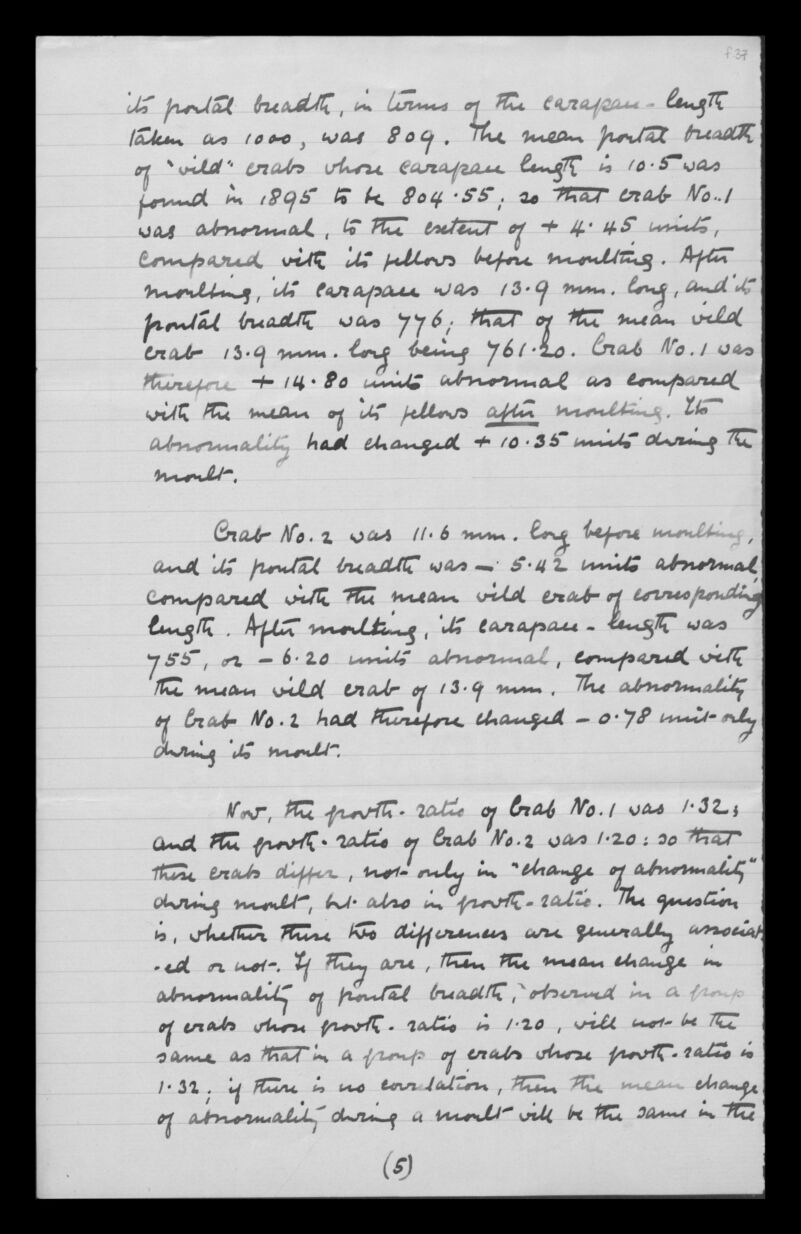 f.37
its frontal breadth, in terms of the carapace-length
taken as 1000, was 809. The mean frontal breadth
of "wild" crabs whose carapace length is 10·5 was
found in 1895 to be 804·55; so that crab No. 1
was abnormal, to the extent of + 4·45 units,
compared with its fellows before moulting. After
moulting, its carapace was 13·9 mm. long, and its
frontal breadth was 776; that of the mean wild
crab 13·9 mm. long being 761·20. Crab No. 1 was
therefore + 14·80 units abnormal as compared
with the mean of its fellows after moulting. Its
abnormality had changed + 10·35 units during the
moult.
Crab No. 2 was 11·6 mm. long before moulting,
and its frontal breadth was — 5·42 units abnormal,
compared with the mean wild crab of corresponding
length. After moulting, its carapace-length was
755, or — 6·20 units abnormal, compared with
the mean wild crab of 13·9 mm. The abnormality
of Crab No. 2 had therefore changed — 0·78 unit only
during its moult.
Now, the growth-ratio of Crab No. 1 was 1·32;
and the growth-ratio of Crab No. 2 was 1·20: so that
these crabs differ, not only in "change of abnormality"
during moult, but also in growth-ratio. The question
is, whether these two differences are generally associat-
-ed or not. If they are, then the mean change in
abnormality of frontal breadth, observed in a group
of crabs whose growth-ratio is 1·20, will not be the
same as that in a group of crabs whose growth-ratio is
1·32; if there is no correlation, then the mean change
of abnormality during a moult will be the same in the
(5)